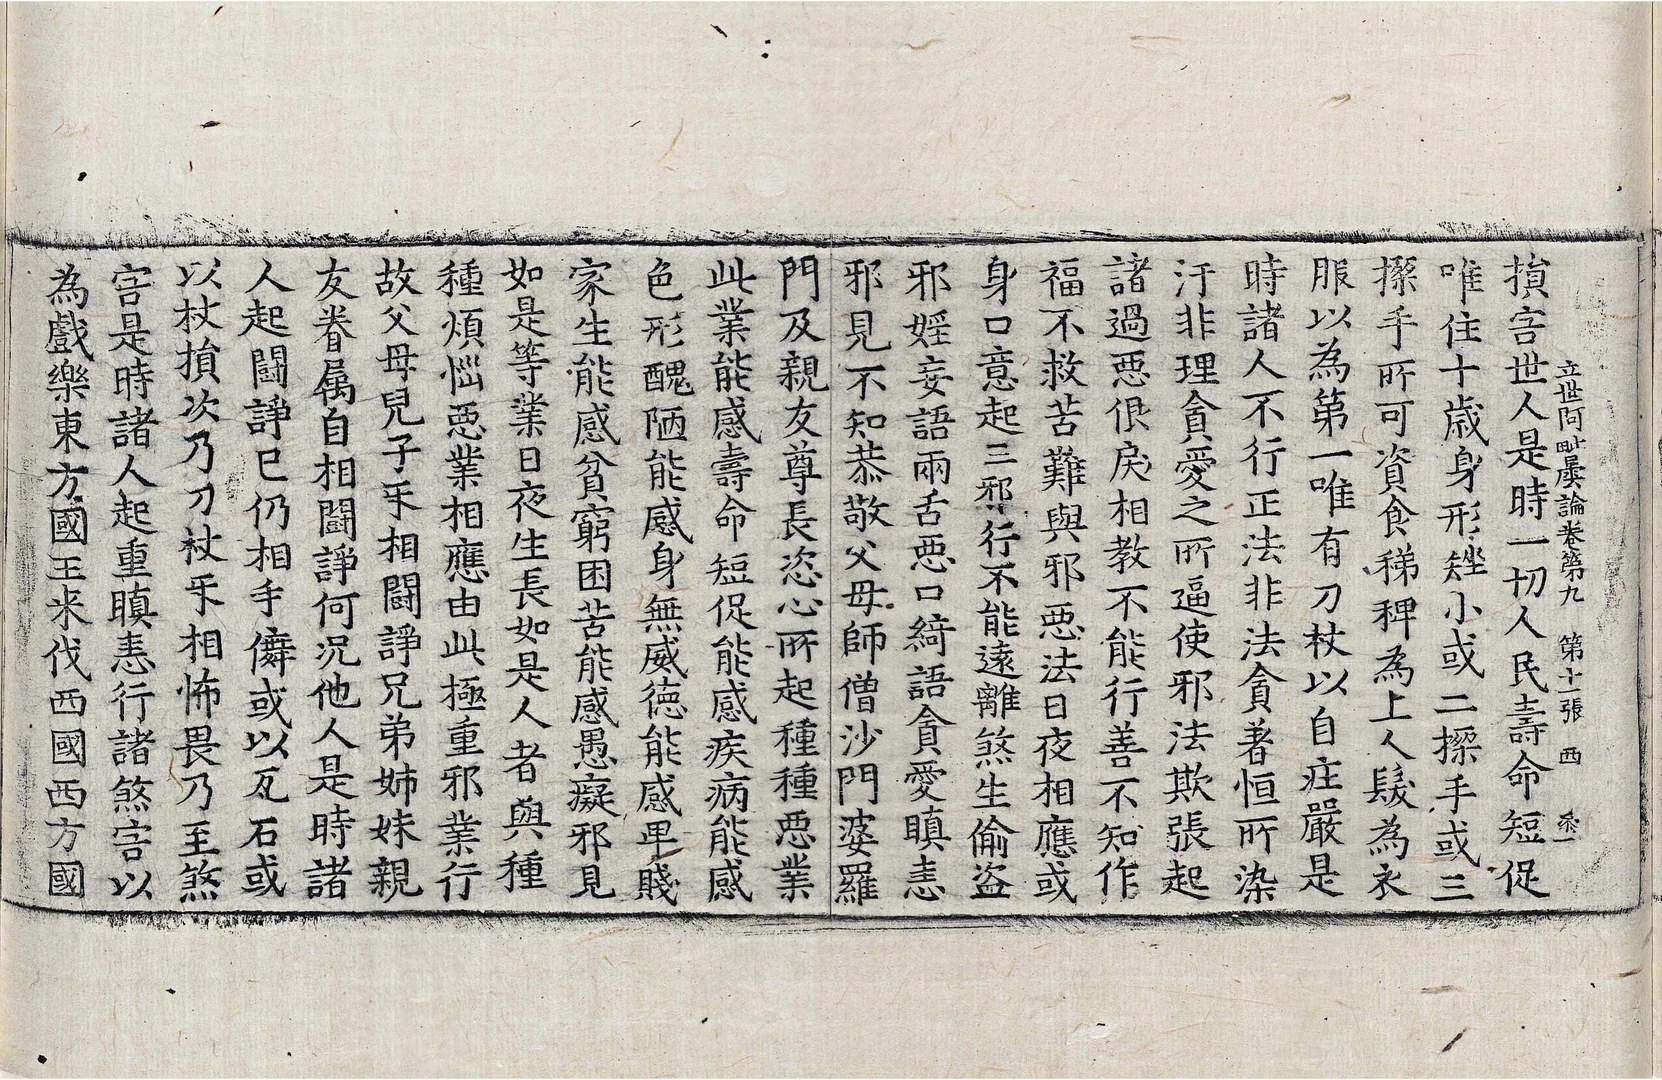 立世阿毗曇論卷第九　第十一張　西
損害世人是時一切人民壽命短促
唯住十歳身形矬小或二搩手或三
搩手所可資食稊稗為上人髮為衣
服以為第一唯有刀杖以自庄嚴是
時諸人不行正法非法貪著恒所染
汙非理貪愛之所逼使邪法欺張起
諸過惡佷戾相教不能行善不知作
福不救苦難與邪惡法日夜相應或
身口意起三邪行不能遠離煞生偷盗
邪婬妄語兩舌惡口綺語貪愛瞋恚
邪見不知恭敬父母師僧沙門婆羅
門及親友尊長恣心所起種種惡業
此業能感壽命短促能感疾病能感
色形醜陋能感身無威德能感卑賤
家生能感貧窮困苦能感愚癡邪見
如是等業日夜生長如是人者與種
種煩惱惡業相應由此極重邪業行
故父母兒子乎相鬪諍兄弟姉妹親
友眷属自相鬪諍何況他人是時諸
人起鬪諍已仍相手僢或以瓦石或
以杖損次乃刀杖乎相怖畏乃至煞
害是時諸人起重瞋恚行諸煞害以
為戲樂東方國王来伐西國西方國